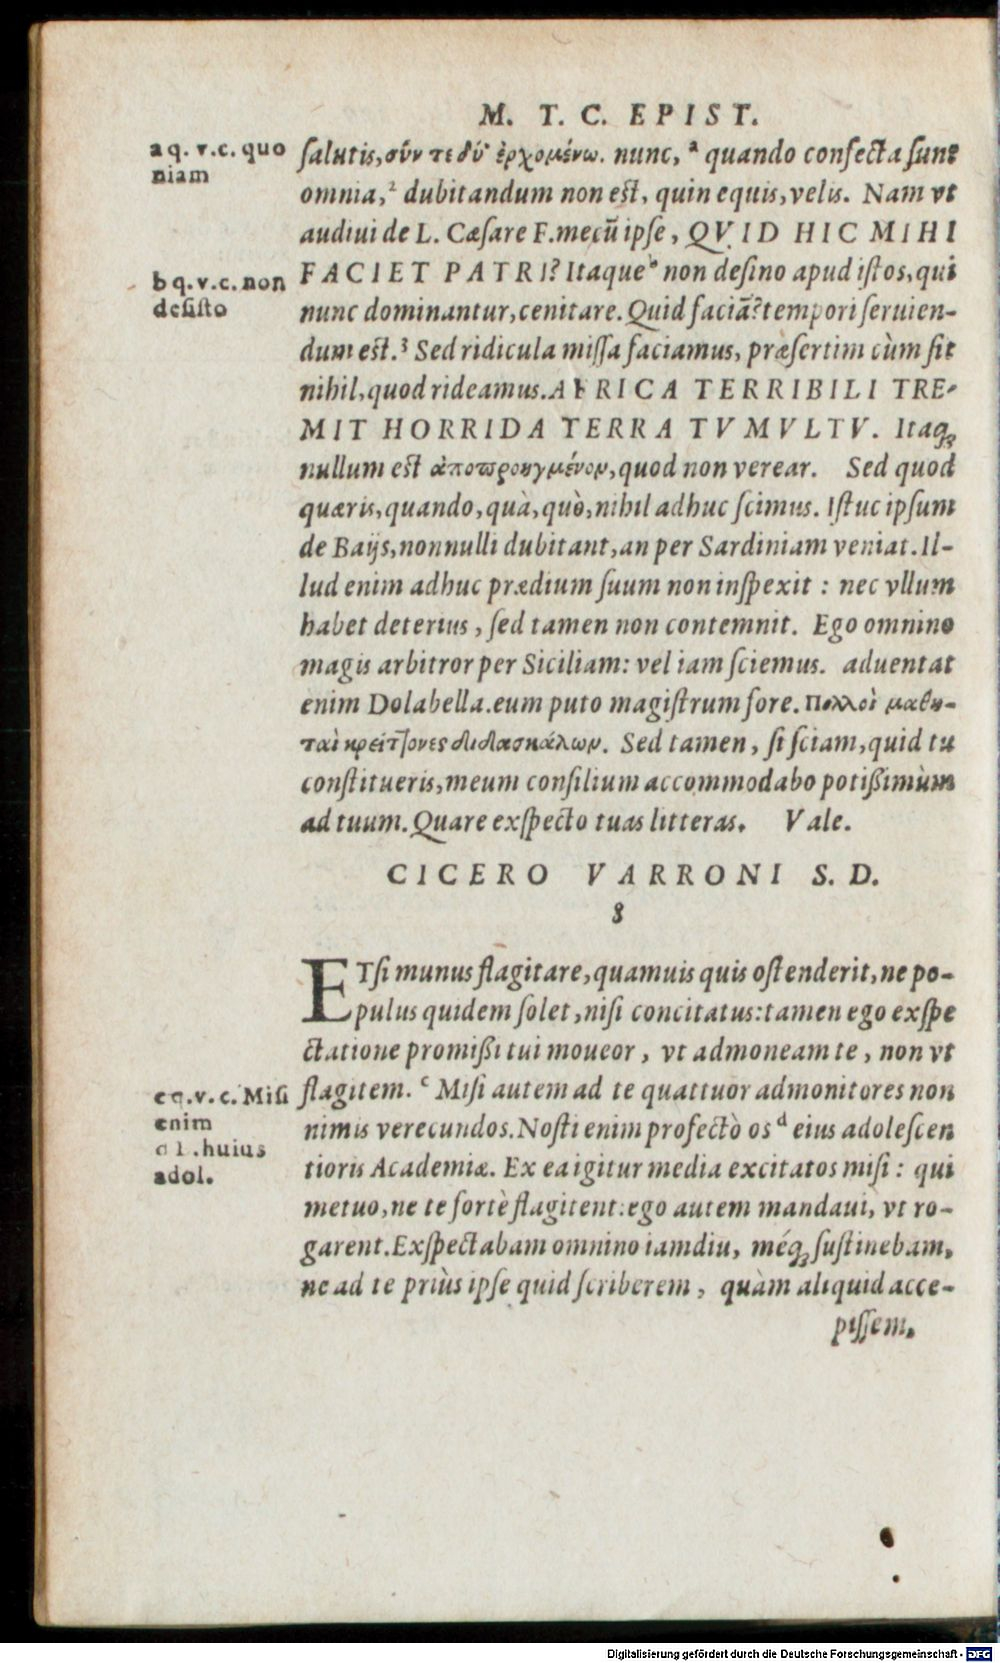 M. T. C. EPIST.
a q. v.c. quo
niam
ſalutis, σύν τε δύ' ἐρχομένω. nunc, ᵃ quando confecta ſunt
omnia, ² dubitandum non eſt, quin equis, velis. Nam vt
audiui de L. Cæſare F. mecū ipſe, QVID HIC MIHI
FACIET PATRI? Itaque ᵇ non deſino apud iſtos, qui
b q. v.c. non
deſiſto
nunc dominantur, cenitare. Quid faciā? tempori ſeruien-
dum eſt. ³ Sed ridicula miſſa faciamus, præſertim cùm ſit
nihil, quod rideamus. AFRICA TERRIBILI TRE-
MIT HORRIDA TERRA TVMVLTV. Itaq;
nullum eſt ἀποπροηγμένον, quod non verear. Sed quod
quæris, quando, quà, quò, nihil adhuc ſcimus. Iſtuc ipſum
de Baijs, nonnulli dubitant, an per Sardiniam veniat. Il-
lud enim adhuc prædium ſuum non inſpexit : nec vllum
habet deterius, ſed tamen non contemnit. Ego omnino
magis arbitror per Siciliam: vel iam ſciemus. aduentat
enim Dolabella. eum puto magiſtrum fore. Πολλοὶ μαθη-
ταὶ κρείττονες διδασκάλων. Sed tamen, ſi ſciam, quid tu
conſtitueris, meum conſilium accommodabo potißimùm
ad tuum. Quare exſpecto tuas litteras. Vale.
CICERO VARRONI S. D.
8
ETſi munus flagitare, quamuis quis oſtenderit, ne po-
pulus quidem ſolet, niſi concitatus: tamen ego exſpe
ctatione promißi tui moueor, vt admoneam te, non vt
flagitem. ᶜ Miſi autem ad te quattuor admonitores non
c q. v. c. Miſi
enim
d l. huius
adol.
nimis verecundos. Noſti enim profectò os ᵈ eius adoleſcen
tioris Academiæ. Ex ea igitur media excitatos miſi : qui
metuo, ne te fortè flagitent: ego autem mandaui, vt ro-
garent. Exſpectabam omnino iamdiu, méq; ſuſtinebam,
ne ad te priùs ipſe quid ſcriberem, quàm aliquid acce-
piſſem.
Digitalisierung gefördert durch die Deutsche Forschungsgemeinschaft - DFG